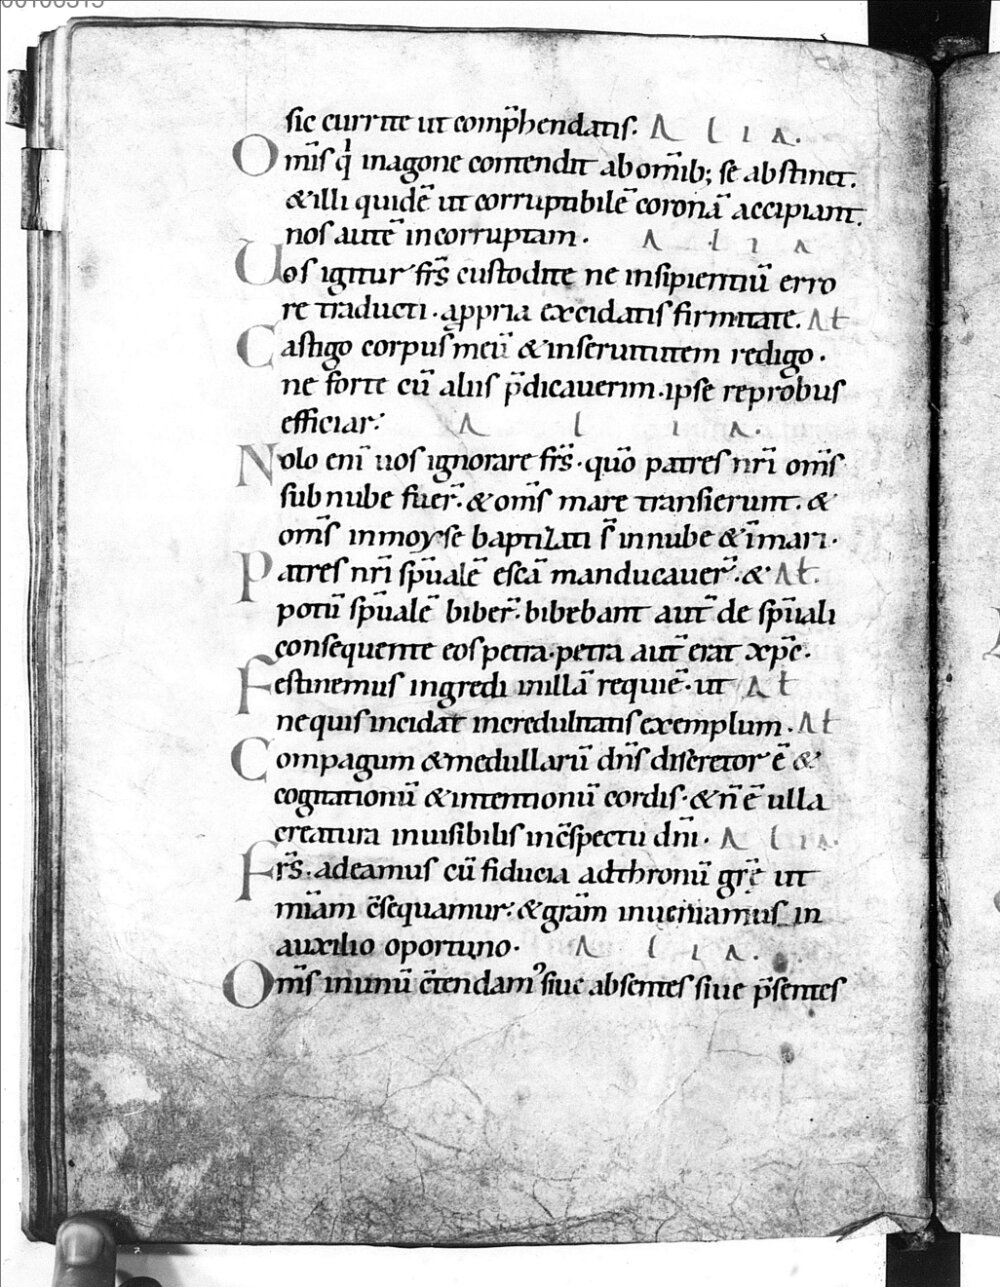 sic currite ut comp̄hendatis. A l i a.
Om̄s q' inagone contendit abom̄ib; se abstinet.
& illi quidē ut corruptibilē coronā accipiant.
nos autē incorruptam. A l i a
Uos igitur fr̄s custodite ne insipientiū erro
re traducti. appria excidatis firmitate. At
Castigo corpus meū & inseruitutem redigo.
ne forte cū aliis p̄dicauerim. ipse reprobus
efficiar. A l i a.
Nolo eni uos ignorare fr̄s. quō patres nr̄i om̄s
sub nube fuer̄. & om̄s mare transierunt. &
om̄s inmoyse baptizati s̄ innube & īmari.
Patres nr̄i sp̄ualē escā manducauer̄. & At.
potū sp̄ualē biber̄. bibebant aut̄ de sp̄uali
consequente eos petra. petra aut̄ erat xp̄c.
Festinemus ingredi inillā requiē. ut At
nequis incidat incredulitatis exemplum. At
Compagum & medullarū dn̄s discretor ē &
cogitationū & intentionū cordis. & n̄ ē ulla
creatura inuisibilis inc̄spectu dn̄i. A l i a.
Fr̄s. adeamus cū fiducia adthronū gr̄e ut
mīam c̄sequamur. & grām inueniamus in
auxilio oportuno. A l i a.
Om̄s inunū c̄tendam' siue absentes siue p̄sentes